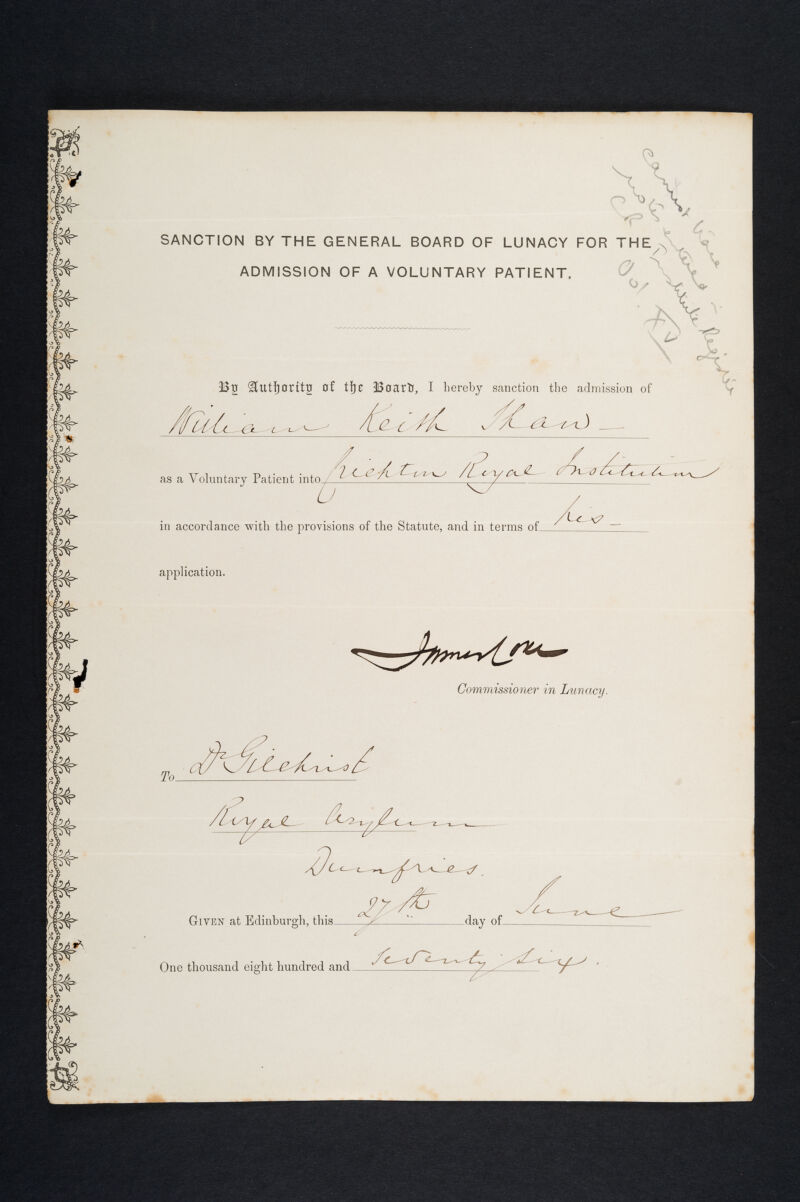 Cannot trace
notes entered in
C R Institute Register
Vol. XV
SANCTION BY THE GENERAL BOARD OF LUNACY FOR THE
ADMISSION OF A VOLUNTARY PATIENT.
By Authority of the Board, I hereby sanction the admission of
William Keith Shaw —
as a Voluntary Patient into Crichton Royal Institution
in accordance with the provisions of the Statute, and in terms of his —
application.
James Coxe
Commissioner in Lunacy.
To Dr Gilchrist
Royal Asylum
Dumfries.
GIVEN at Edinburgh, this 27th day of June
One thousand eight hundred and Seventy Six.